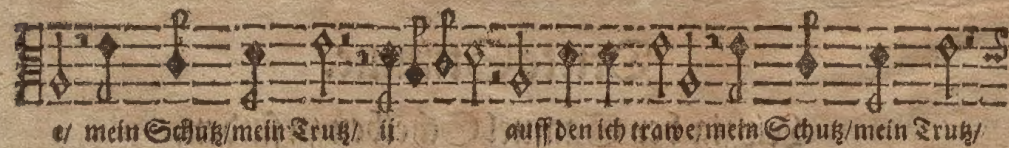 e/ mein Schutz/mein Trutz/ ij auff den ich trawe/mein Schutz/mein Trutz/